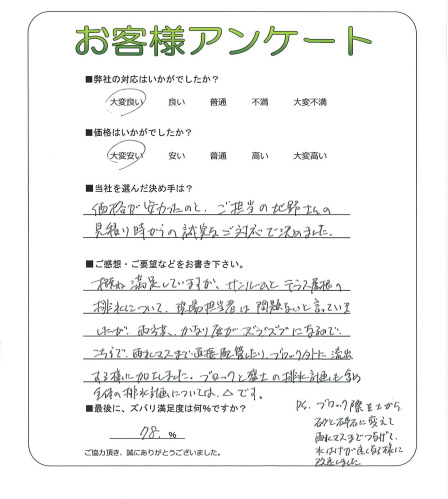 お客様アンケート
■弊社の対応はいかがでしたか？
大変良い 良い 普通 不満 大変不満
■価格はいかがでしたか？
大変安い 安い 普通 高い 大変高い
■当社を選んだ決め手は？
価格が安かったのと、ご担当の地野さんの
見積り時からの誠実なご対応で決めました。
■ご感想・ご要望などをお書き下さい。
概ね満足していますが、サンルームとテラス屋根の
排水について、現場担当者は問題ないと言っていま
したが、雨天、かなり庭がズブズブになるので、
こちらで、雨水マスまで直接配管したり、ブロック外に流出
する様に加工しました。ブロックと盛土の排水計画も含め
全体の排水計画については、△です。
■最後に、ズバリ満足度は何％ですか？
78. %
P.S. ブロック際を土から
砂と砕石に変えて
雨水マスまでつなげて、
水はけが良くなる様に
改良しました。
ご協力頂き、誠にありがとうございました。